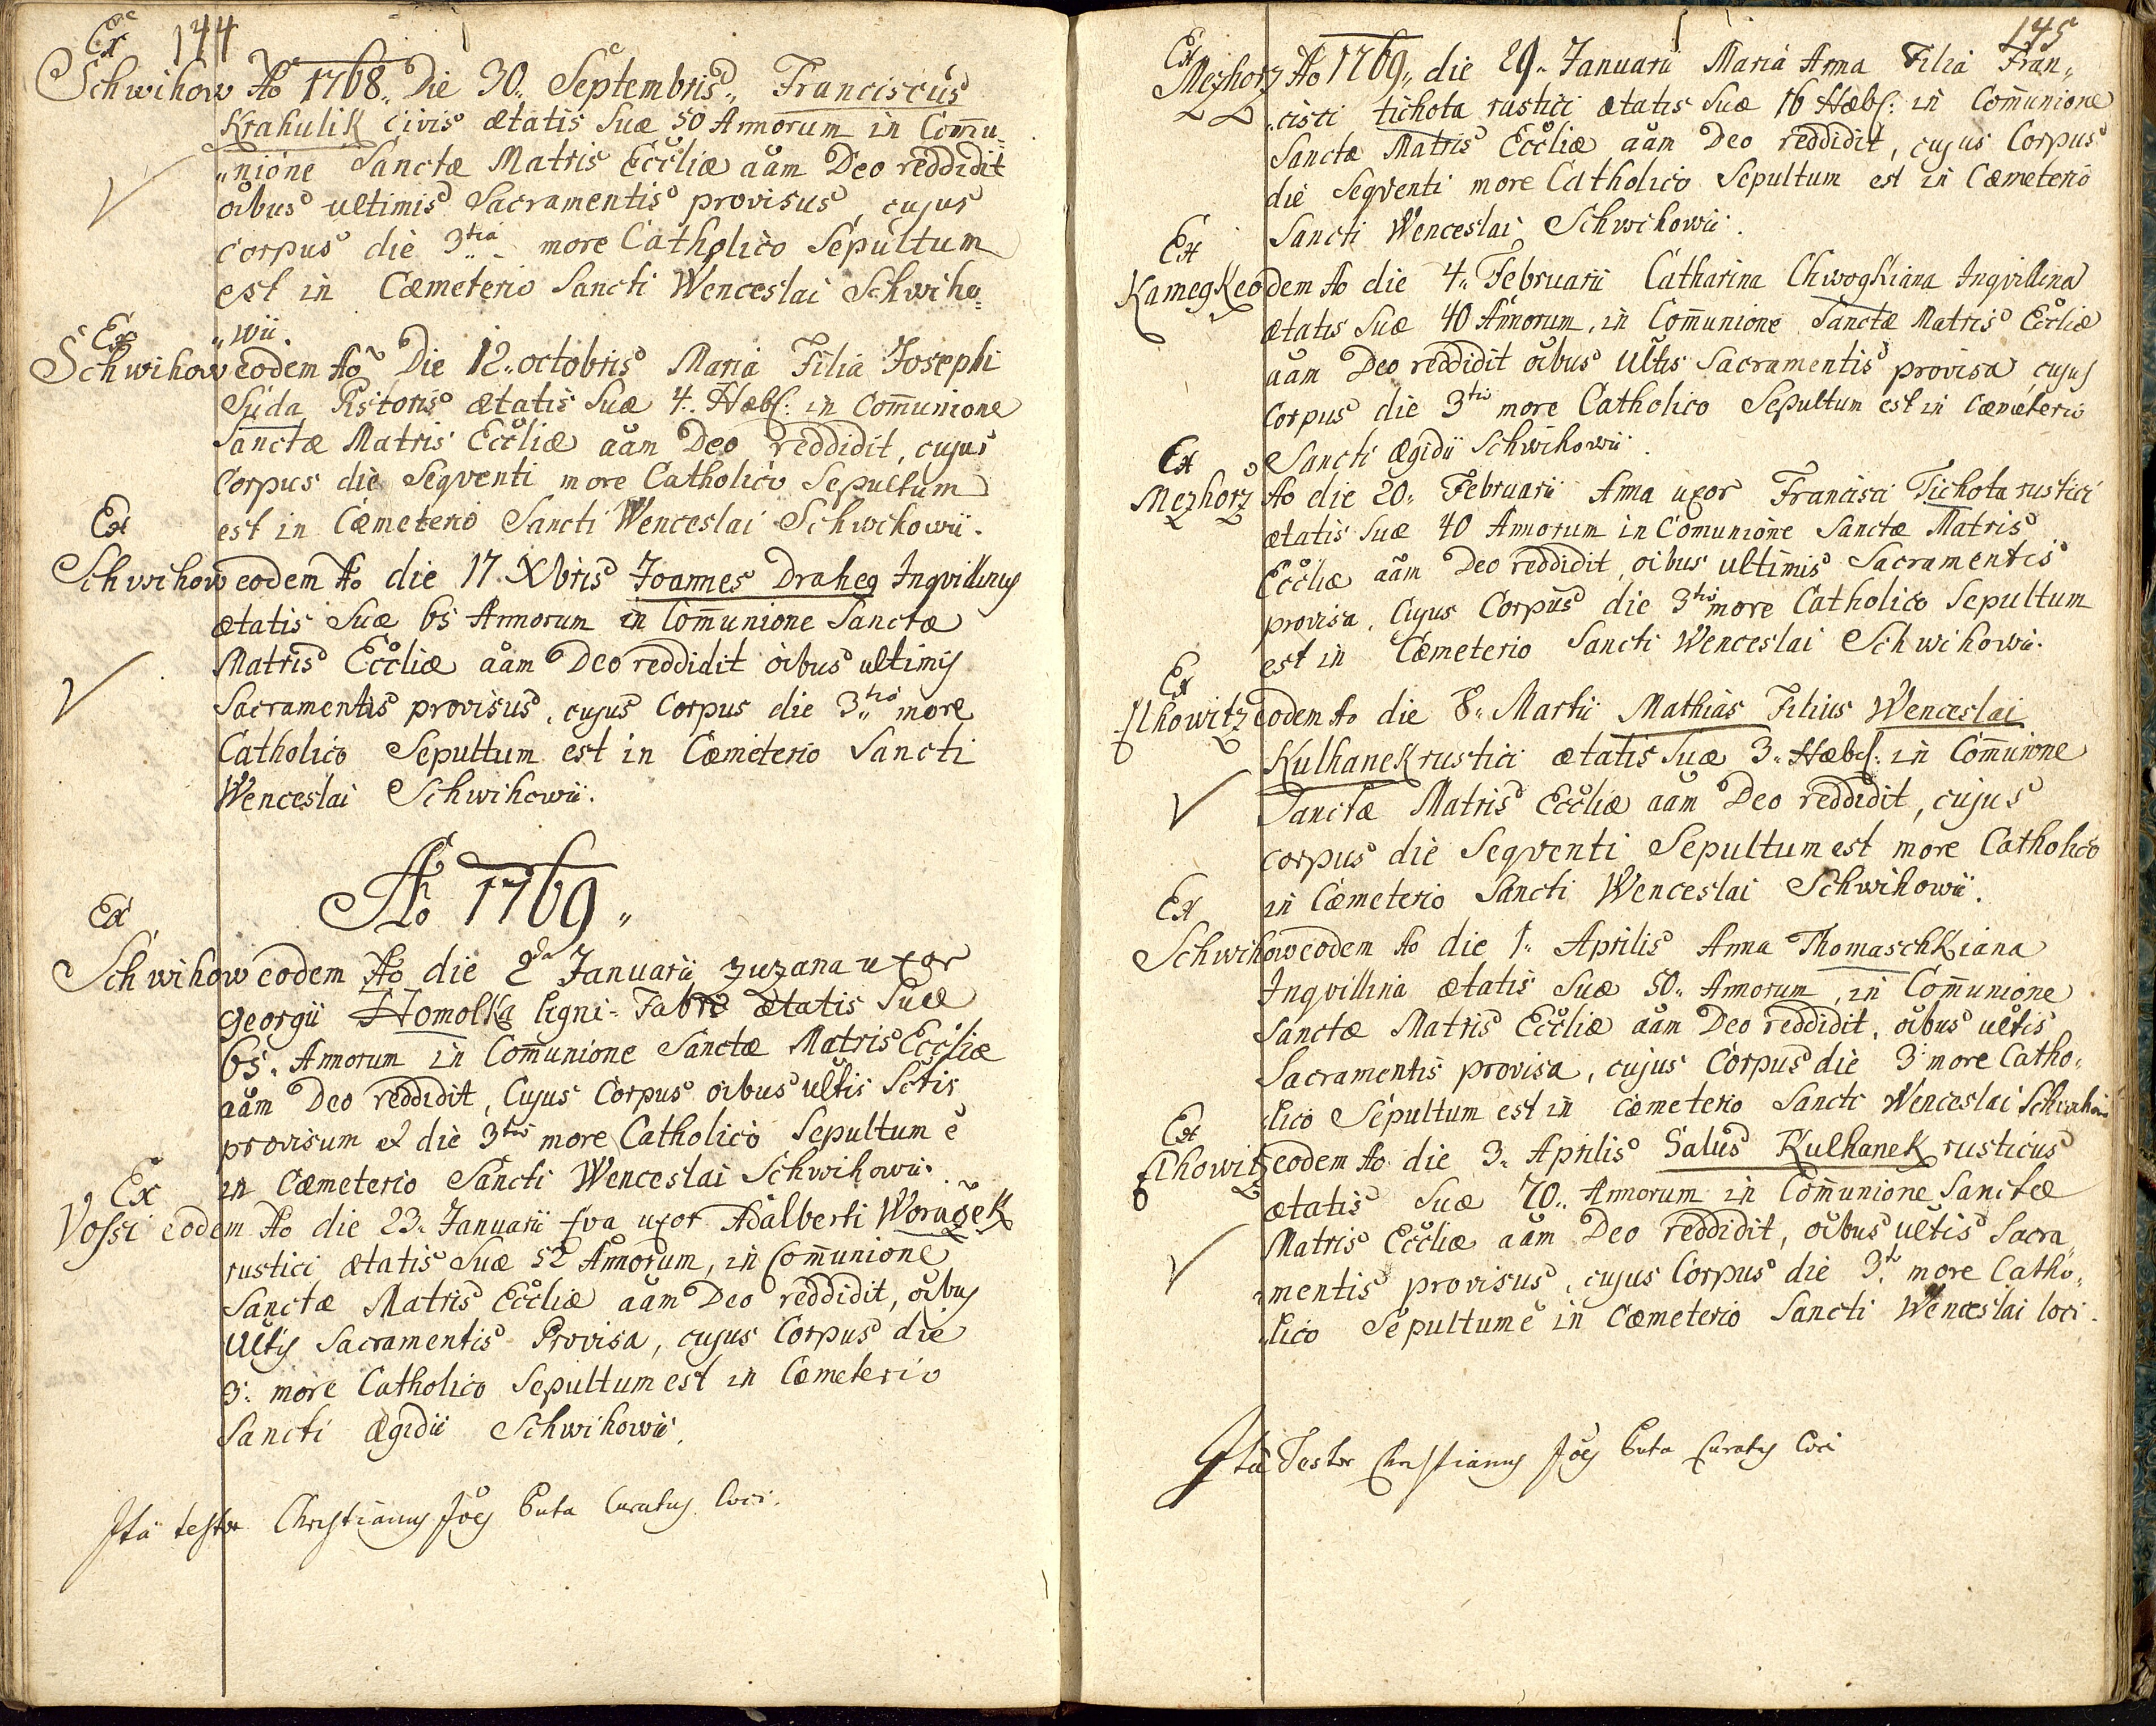 144
Ex
Schwihow Ao 1768. Die 30. Septembris, Franciscus
Krahulik civis ætatis Suæ 50 Annorum in Commu„
„nione Sanctæ Matris Eccliæ aam Deo reddidit
oibus ultimis Sacramentis provisus, cujus
corpus die 3tia more Catholico Sepultum
est in Cæmeterio Sancti Wenceslai Schwiho„
„wii.
Ex
Schwihow eodem Ao Die 12. octobris Maria Filia Josephi
Suda Pistoris ætatis Suæ 4. Hæbd: in Communione
Sanctæ Matris Eccliæ aam Deo reddidit, cujus
Corpus die Seqventi more Catholico Sepultum
est in Cæmeterio Sancti Wenceslai Schwihowii.
Ex
Schwihow eodem Ao die 17. Xbris Joannes Draheg Inqvillinus
ætatis Suæ 65 Annorum in Communione Sanctæ
Matris Eccliæ aam Deo reddidit oibus ultimis
Sacramentis provisus, cujus Corpus die 3tio more
Catholico Sepultum est in Cæmiterio Sancti
Wenceslai Schwihowii.
Ao 1769„
Ex
Schwihow eodem Ao die 2da Januarii Zuzana uxor
Georgii Homolka ligni-Fabri ætatis Suæ
65. Annorum in Communione Sanctæ Matris Eccliæ
aam Deo reddidit, Cujus Corpus oibus ultis Sctis
provisum et die 3tio more Catholico Sepultum e
in Cæmeterio Sancti Wenceslai Schwihowii.
Ex
Vossi eodem Ao die 23. Januarii Eva uxor Adalberti Woražek
rustici ætatis Suæ 52 Annorum, in Communione
Sanctæ Matris Eccliæ aam Deo reddidit, oibus
Ultis Sacramentis Provisa, cujus Corpus die
3. more Catholico Sepultum est in Cæmeterio
Sancti Ægidii Schwihowii.
Ita testor Christianus Joes Buta Curatus loci.
145
Ex
Mezhorz Ao 1769„ die 29. Januarii Maria Anna Filia Fran„
„cisci tichota rustici ætatis Suæ 16 Hæbd: in Communione
Sanctæ Matris Eccliæ aam Deo reddidit, cujus Corpus
die Seqventi more Catholico Sepultum est in Cæmeterio
Sancti Wenceslai Schwihowii.
Ex
Kamegk eodem Ao die 4. Februarii Catharina Chwogkiana Inqvillina
ætatis Suæ 40 Annorum, in Communione Sanctæ Matris Eccliæ
aam Deo reddidit oibus Ultis Sacramentis provisa, cujus
Corpus die 3tio more Catholico Sepultum est in Cæmeterio
Sancti Ægidii Schwihowii.
Ex
Mezhorz Ao die 20. Februarii Anna uxor Francisci Tichota rustici
ætatis Suæ 40 Annorum in Comunione Sanctæ Matris
Eccliæ aam Deo reddidit, oibus ultimis Sacramentis
provisa, Cujus Corpus die 3tio more Catholico Sepultum
est in Cæmeterio Sancti Wenceslai Schwihowii.
Ex
Lhowitz eodem Ao die 8. Martii Mathias Filius Wenceslai
Kulhanek rustici ætatis Suæ 3. Hæbd: in Communione
Sanctæ Matris Eccliæ aam Deo reddidit, cujus
corpus die Seqventi Sepultum est more Catholico
in Cæmeterio Sancti Wenceslai Schwihowii.
Ex
Schwihow eodem Ao die 1. Aprilis Anna Thomaschkiana
Inqvillina ætatis Suæ 50. Annorum, in Communione
Sanctæ Matris Eccliæ aam Deo reddidit, oibus ultis
Sacramentis provisa, cujus Corpus die 3. more Catho„
„lico Sepultum est in Cæmeterio Sancti Wenceslai Schwihow
Ex
Lhowitz eodem Ao die 3. Aprilis Salus Kulhanek rusticus
ætatis Suæ 70. Annorum in Communione Sanctæ
Matris Eccliæ aam Deo reddidit, oibus ultis Sacra„
„mentis provisus, cujus Corpus die 3. more Catho„
„lico Sepultum e in Cæmeterio Sancti Wenceslai loci.
Ita Testor Christianus Joes Buta Curatus loci